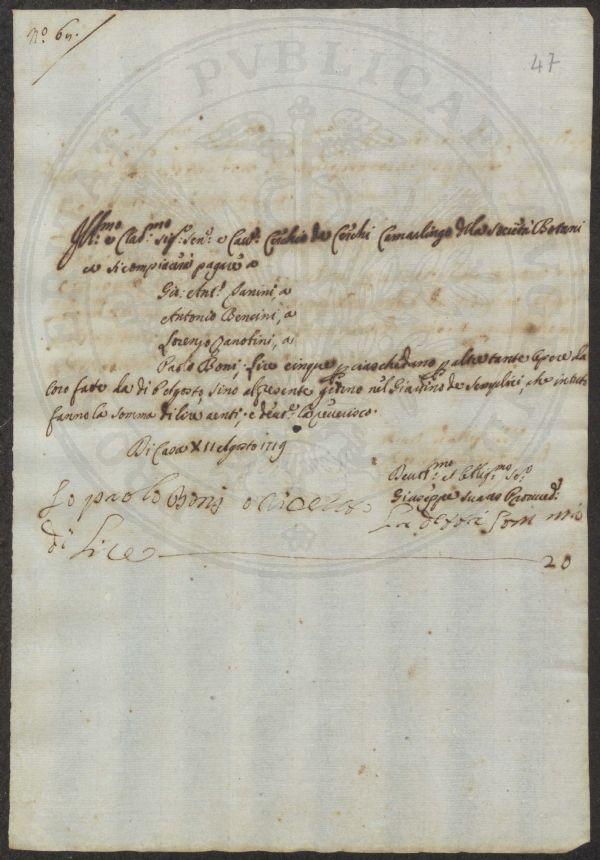 nº. 69.
47
Ill.mo e Clar.mo Sig.r Sen.re e Cav.re Cerchio de Cerchi Camarlingo della Società Botani
ca si compiacerà pagare a
Gio: Ant.o Janini, a
Antonio Bencini, a
Lorenzo Zanobini, a
Paolo Boni, Lire cinque p ciaschedano p altretante Opere da
loro fatte da di P.o Agosto, sino al presente giorno nel Giardino de Semplici, che in tutto
fanno la somma di lire venti, e
Di Casa X 11 Agosto 1719
Devot.mo et Oblig.mo Se.re
Giuseppe Suares Proved.
Io paolo Boni o ricevuto La detta Som ma
di Lire 20
PVBLICAE